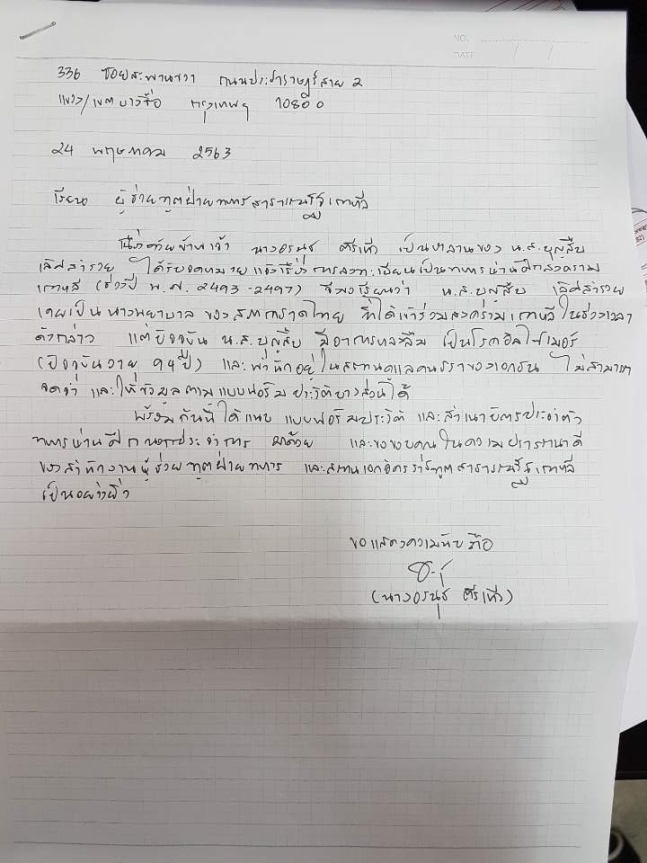 NO.
DATE
336 ซอยสะพานขวา ถนนประชาราษฎร์สาย 2
แขวง/เขตบางซื่อ กรุงเทพฯ 10800
24 พฤษภาคม 2563
เรียน ผู้ช่วยทูตฝ่ายทหารสาธารณรัฐเกาหลี
เนื่องด้วยข้าพเจ้า นางอรนุช ศรีเที่ยง เป็นหลานของ น.ส.บุญสืบ
เลิศสำรวย ได้รับจดหมายแจ้งเรื่องการลงทะเบียนเป็นทหารผ่านศึกสงคราม
เกาหลี (ช่วงปี พ.ศ. 2493-2497) จึงขอเรียนว่า น.ส.บุญสืบ เลิศสำรวย
เคยเป็นนางพยาบาล ของสภากาชาดไทย ที่ได้เข้าร่วมสงครามเกาหลีในช่วงเวลา
ดังกล่าว แต่ปัจจุบัน น.ส.บุญสืบ มีอาการหลงลืม เป็นโรคอัลไซเมอร์
(ปัจจุบันอายุ 94 ปี) และพำนักอยู่ในสถานดูแลคนชราของเอกชน ไม่สามารถ
จดจำ และให้ข้อมูลตามแบบฟอร์มประวัติบางส่วนได้
พร้อมกันนี้ได้แนบ แบบฟอร์มประวัติ และสำเนาบัตรประจำตัว
ทหารผ่านศึกนอกประจำการ มาด้วย และขอขอบคุณในความปรารถนาดี
ของสำนักงานผู้ช่วยทูตฝ่ายทหาร และสถานเอกอัครราชทูตสาธารณรัฐเกาหลี
เป็นอย่างยิ่ง
ขอแสดงความนับถือ
(นางอรนุช)